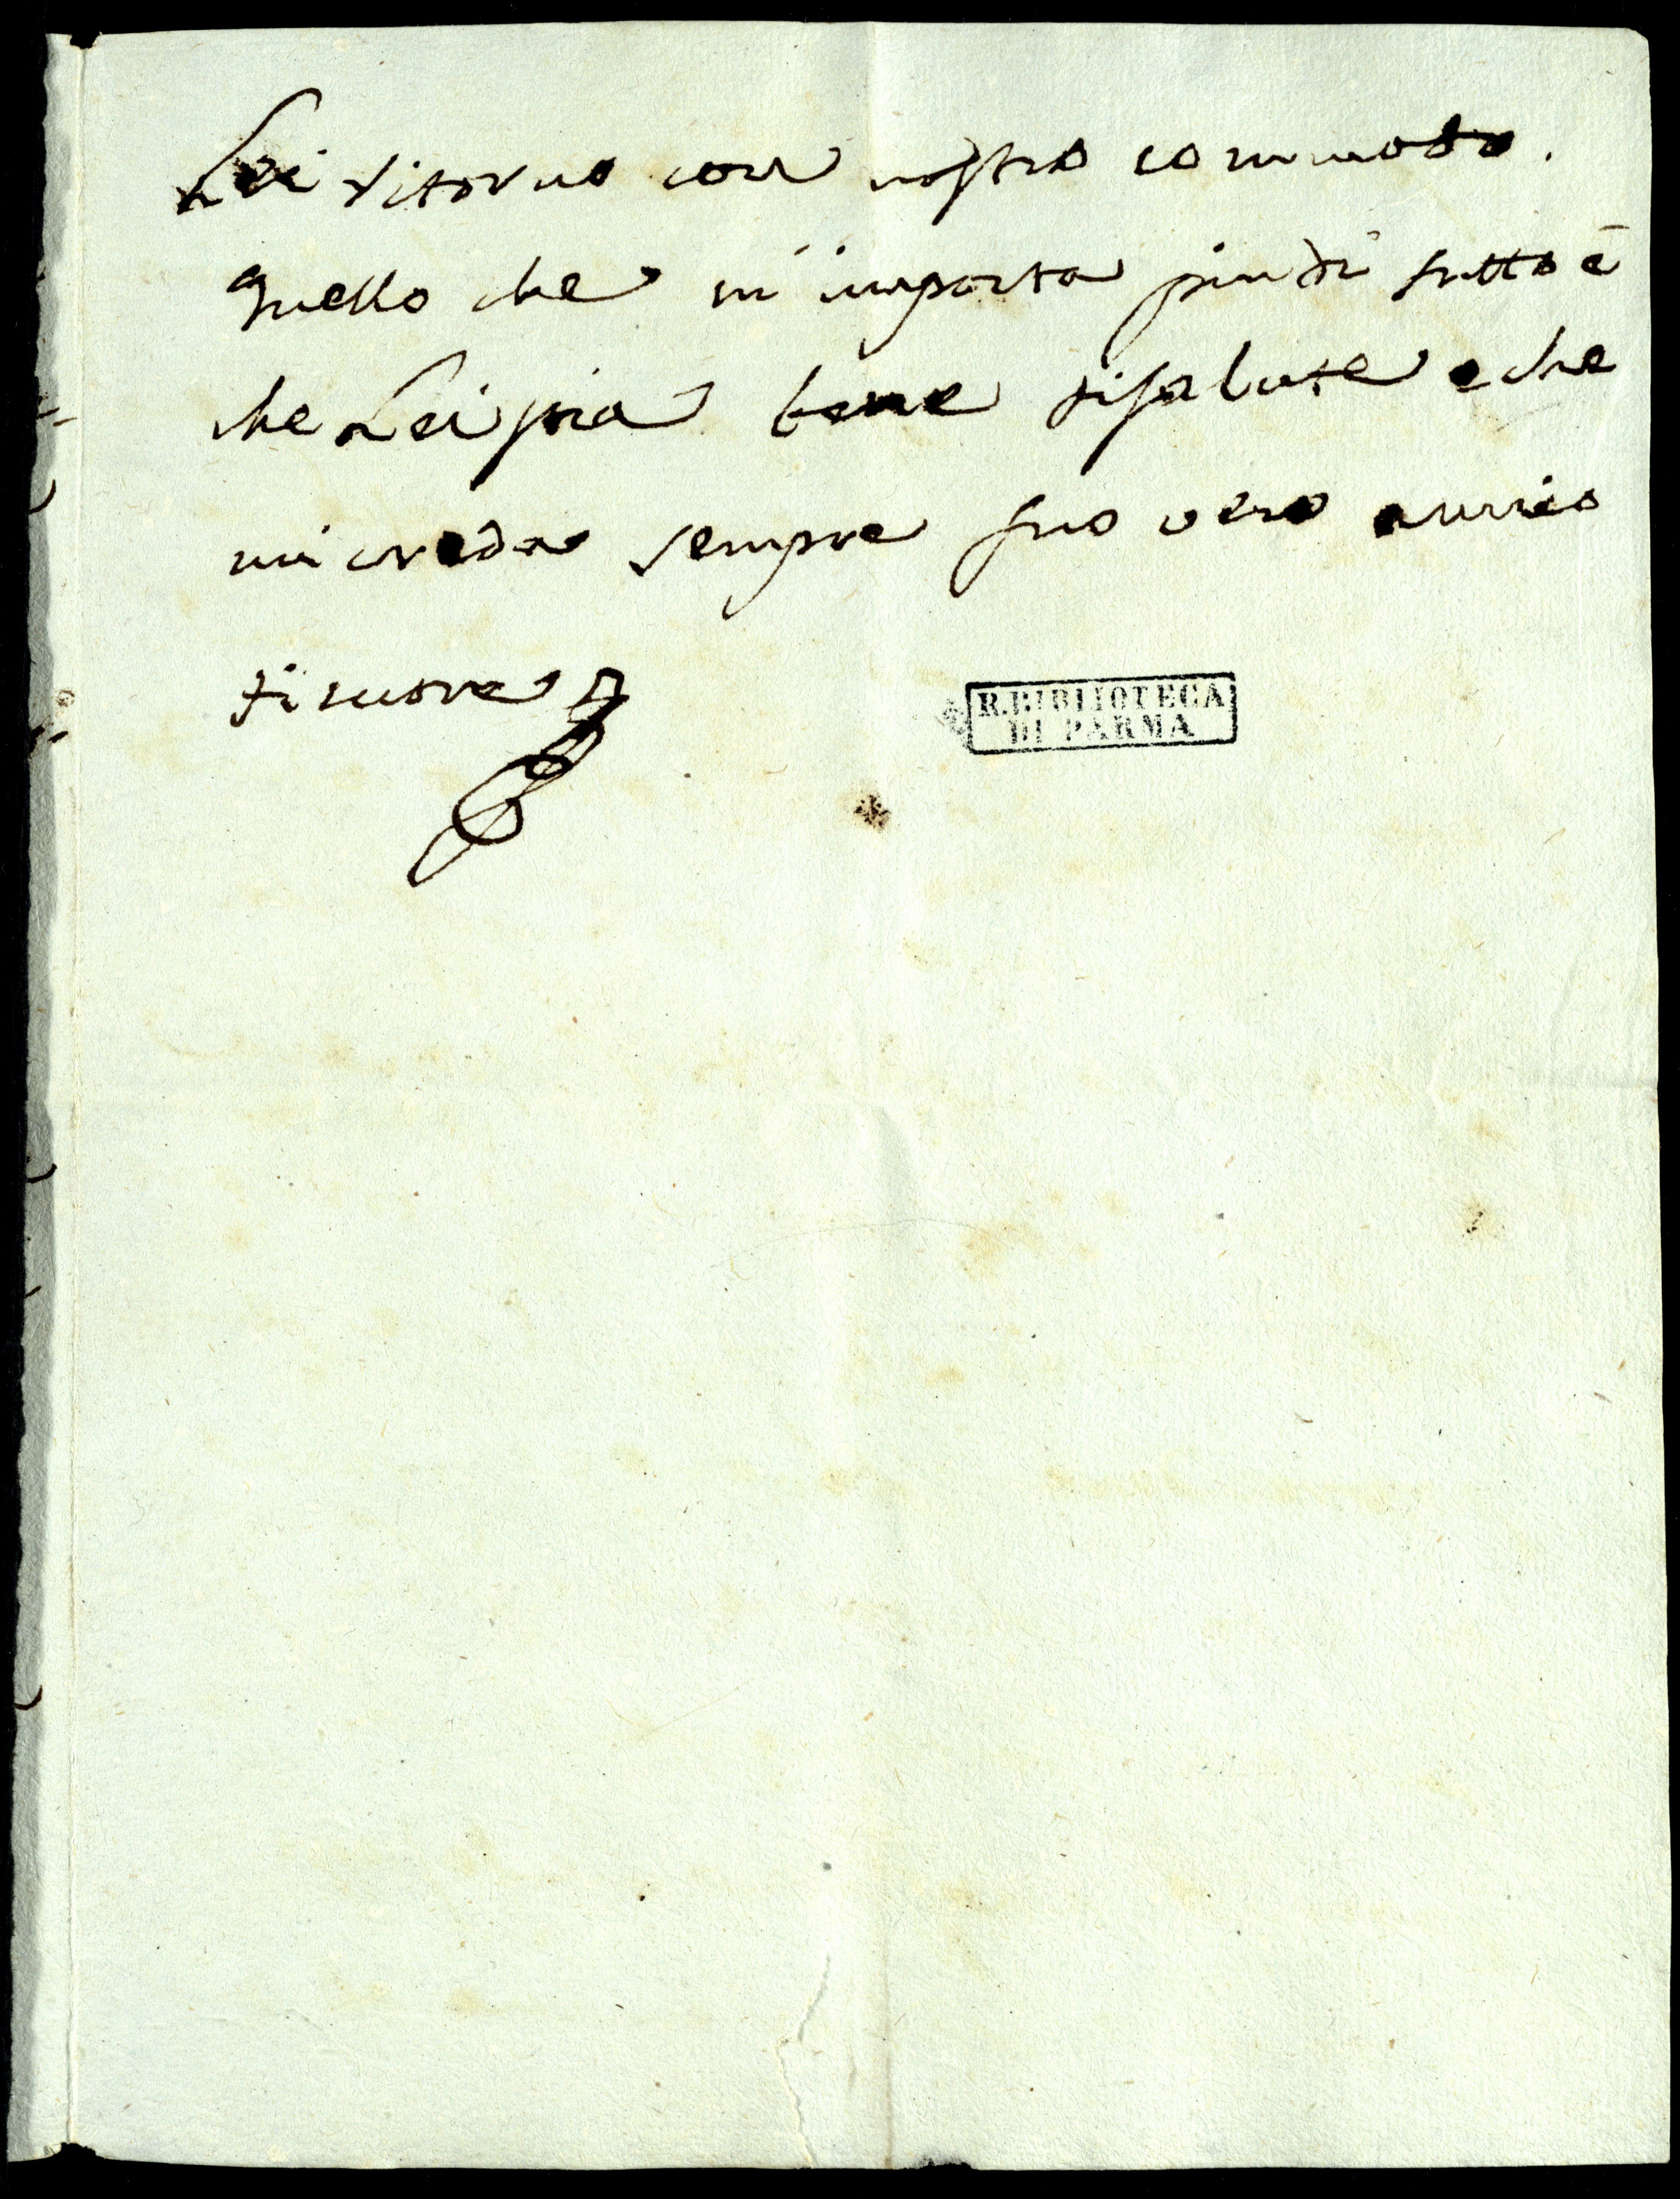 Lei ritorno con nostro commodo.
quello che m'importa piu di tutto è
che Lei sia bene di salute e che
mi creda sempre suo vero amico
di cuore
R. BIBLIOTECA
DI PARMA